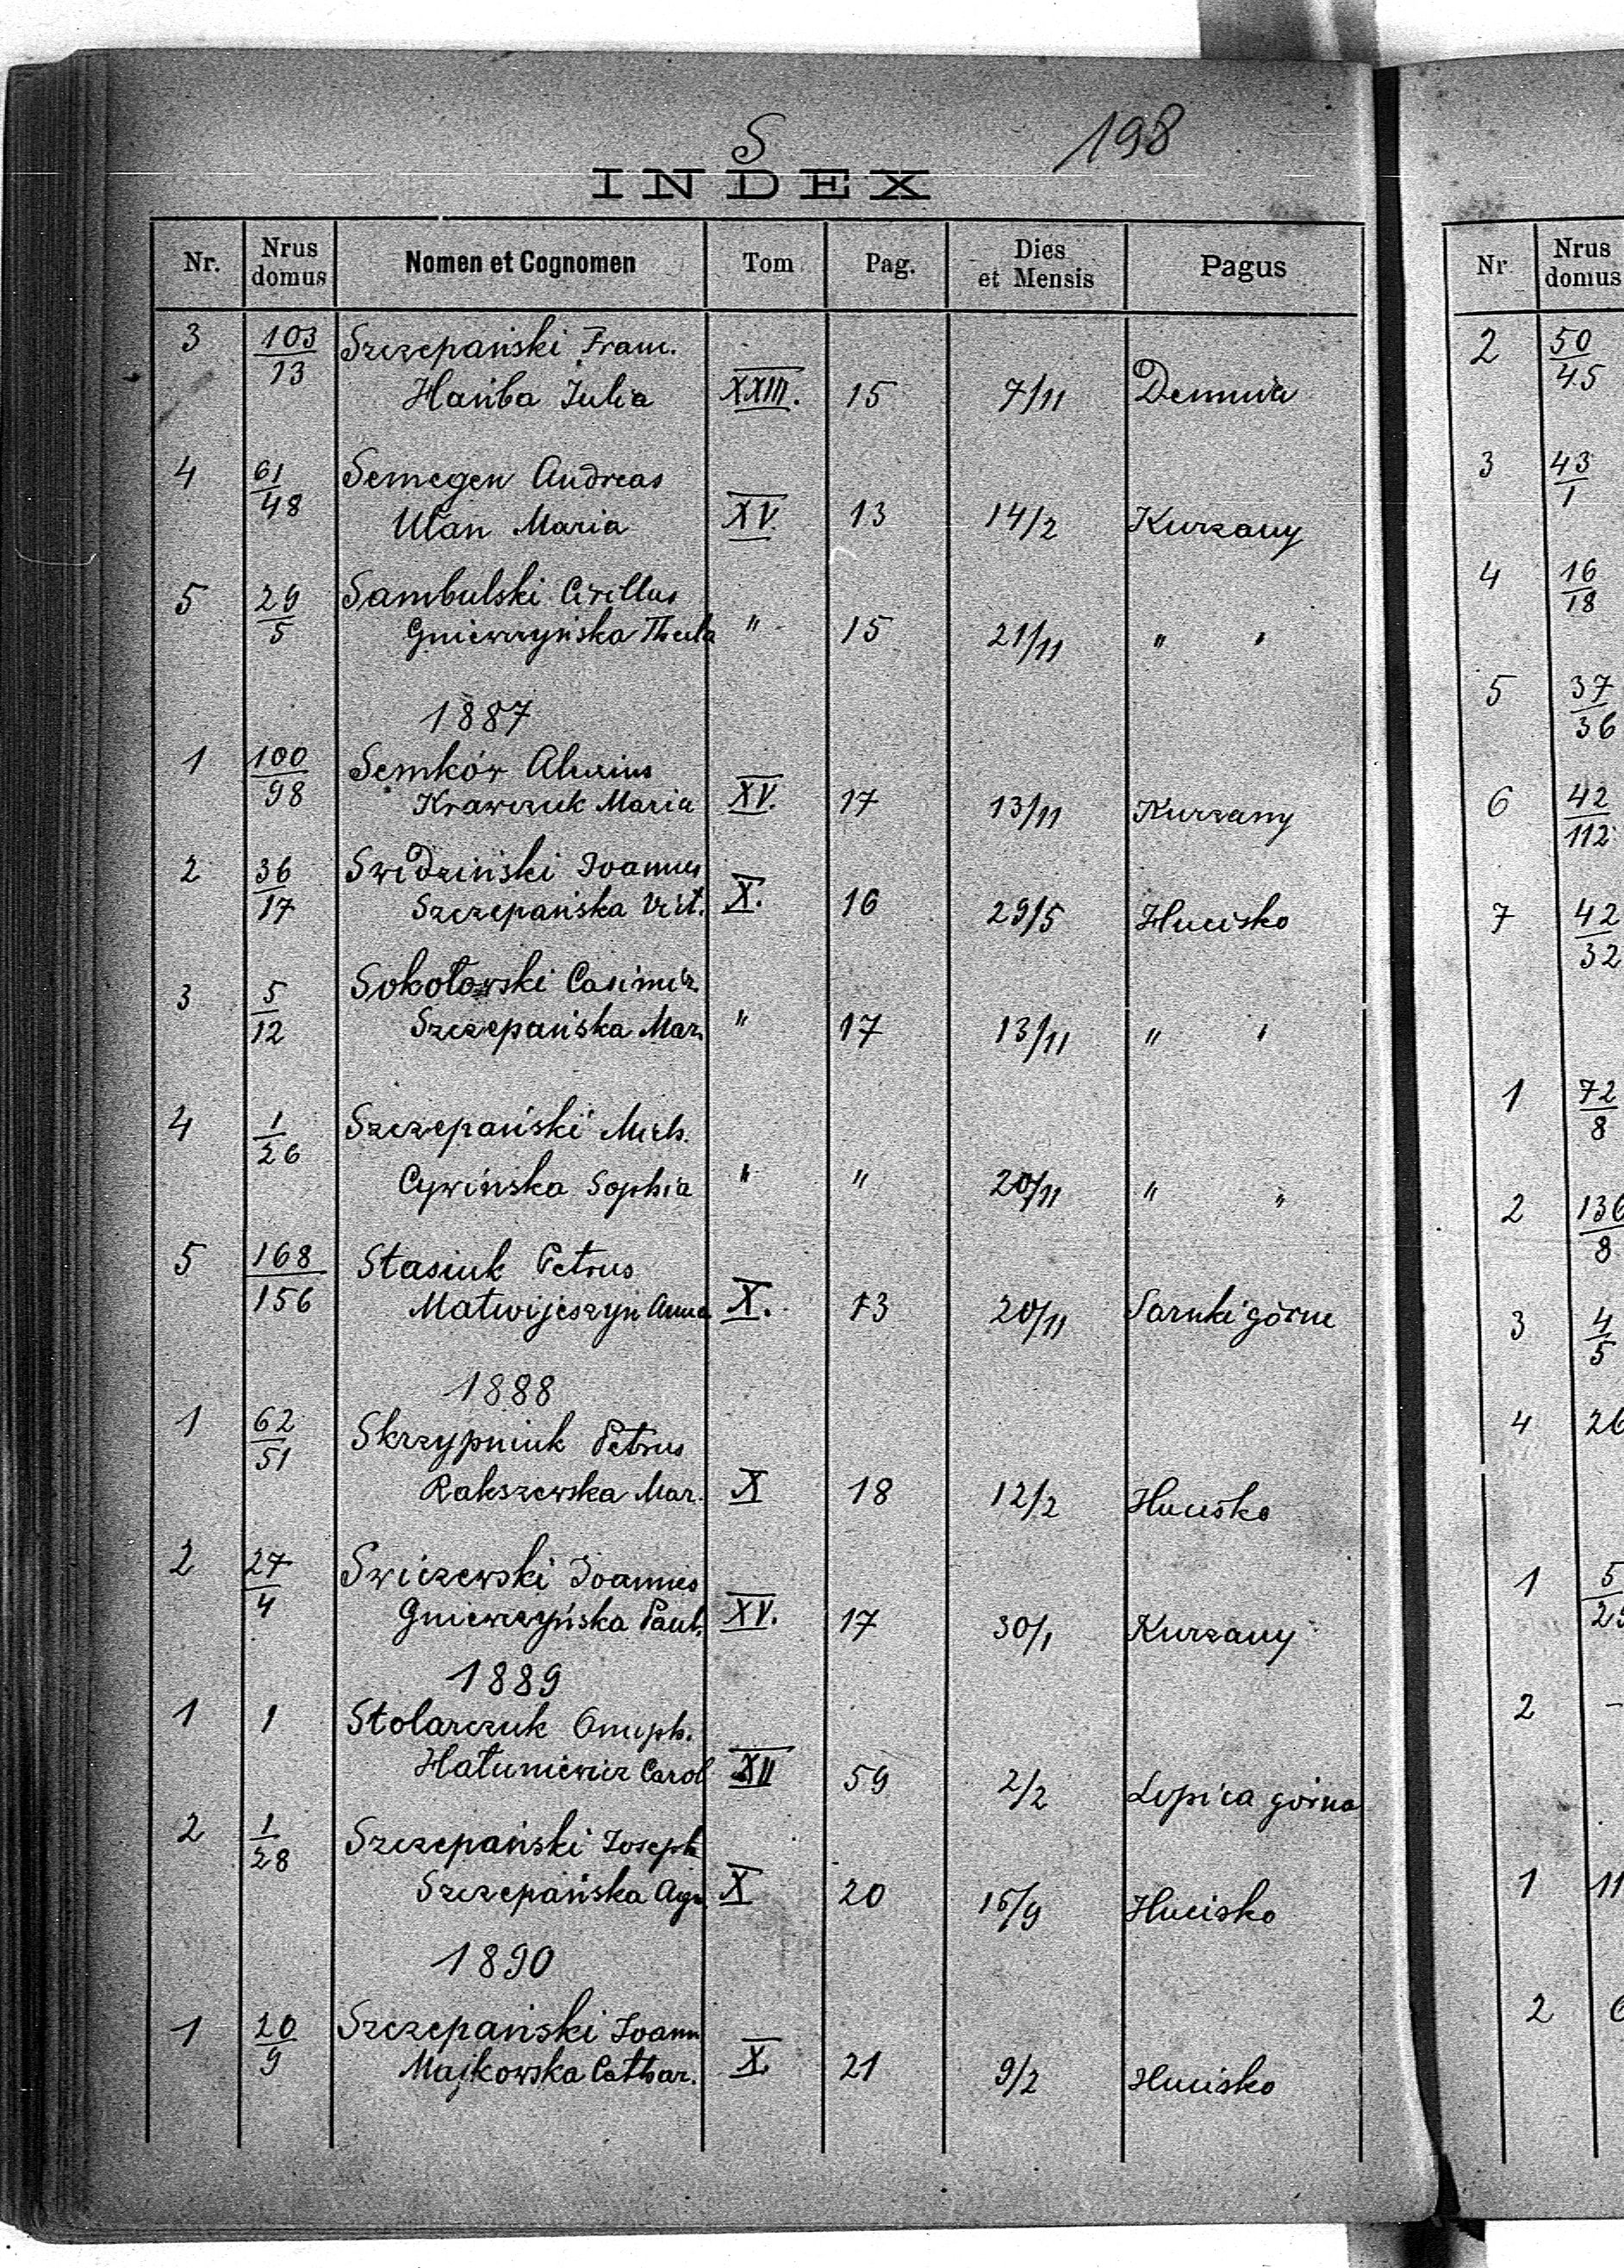 S
198
INDEX
Nr. Nrus domus Nomen et Cognomen Tom Pag. Dies et Mensis Pagus
3 103/13 Szczepański Franc.
Hańba Julia XXIII. 15 7/11 Demnia
4 61/48 Semegen Andreas
Ulan Maria XV. 13 14/2 Kurzany
5 29/5 Sambulski Cirillus
Gniewczyńska Thecla " 15 21/11 " "
1887
1 100/98 Semków Alexius
Krawczuk Maria XV. 17 13/11 Kurzany
2 36/17 Swidziński Joannes
Szczepańska Vict. X. 16 29/5 Hucisko
3 5/12 Sokołowski Casimir.
Szczepańska Mar. " 17 13/11 " "
4 1/26 Szczepański Mich.
Cywińska Sophia " " 20/11 " "
5 168/156 Stasiuk Petrus
Matwijeszyn Anna X. 13 20/11 Sarnki górne
1888
1 62/51 Skrzypniuk Petrus
Rakszewska Mar. X 18 12/2 Hucisko
2 27/4 Swiczewski Joannes
Gniewczyńska Paul. XV. 17 30/1 Kurzany
1889
1 1 Stolarczuk Onuph.
Hatuniewicz Carol XII 59 2/2 Lipica górna
2 1/28 Szczepański Joseph
Szczepańska Agn. X 20 15/9 Hucisko
1890
1 20/9 Szczepański Joann
Majkowska Cathar. X 21 9/2 Hucisko
Nr Nrus domus
2 50/45
3 43/1
4 16/18
5 37/36
6 42/112
7 42/32
1 72/8
2 136/8
3 4/5
4
1
2
1
2